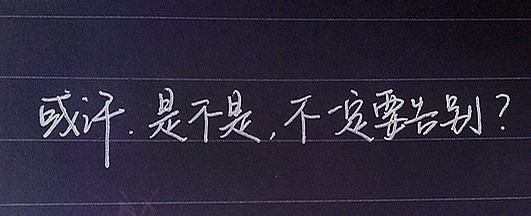 或许.是不是,不一定要告别?